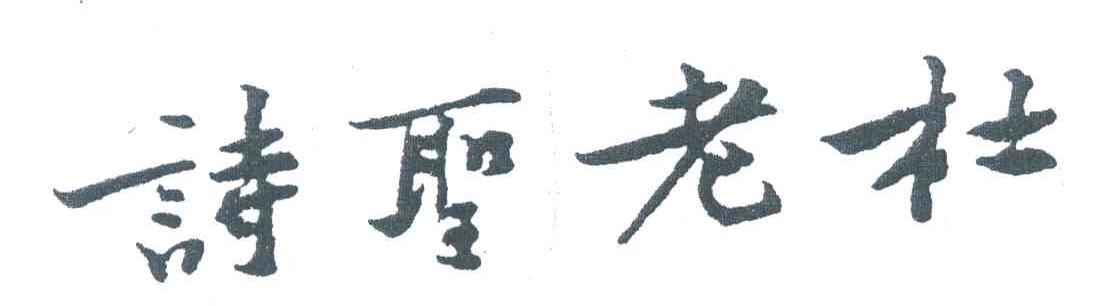 詩聖老杜